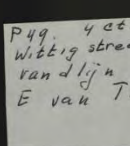 P 49. 4 ct
wittig stree
rand lijn
E van T